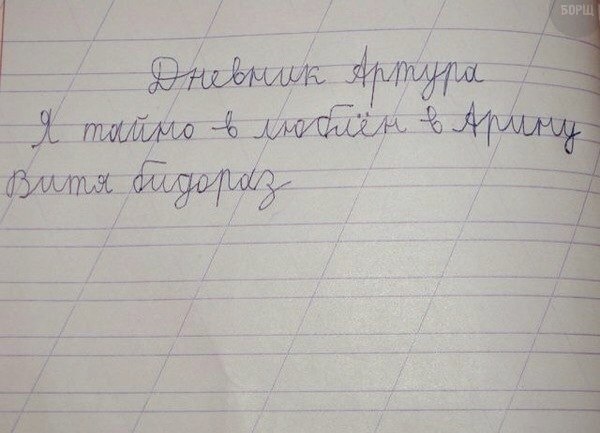 БОРЩ
Дневник Артура
Я тайно в люблён в Арину
Витя бидораз